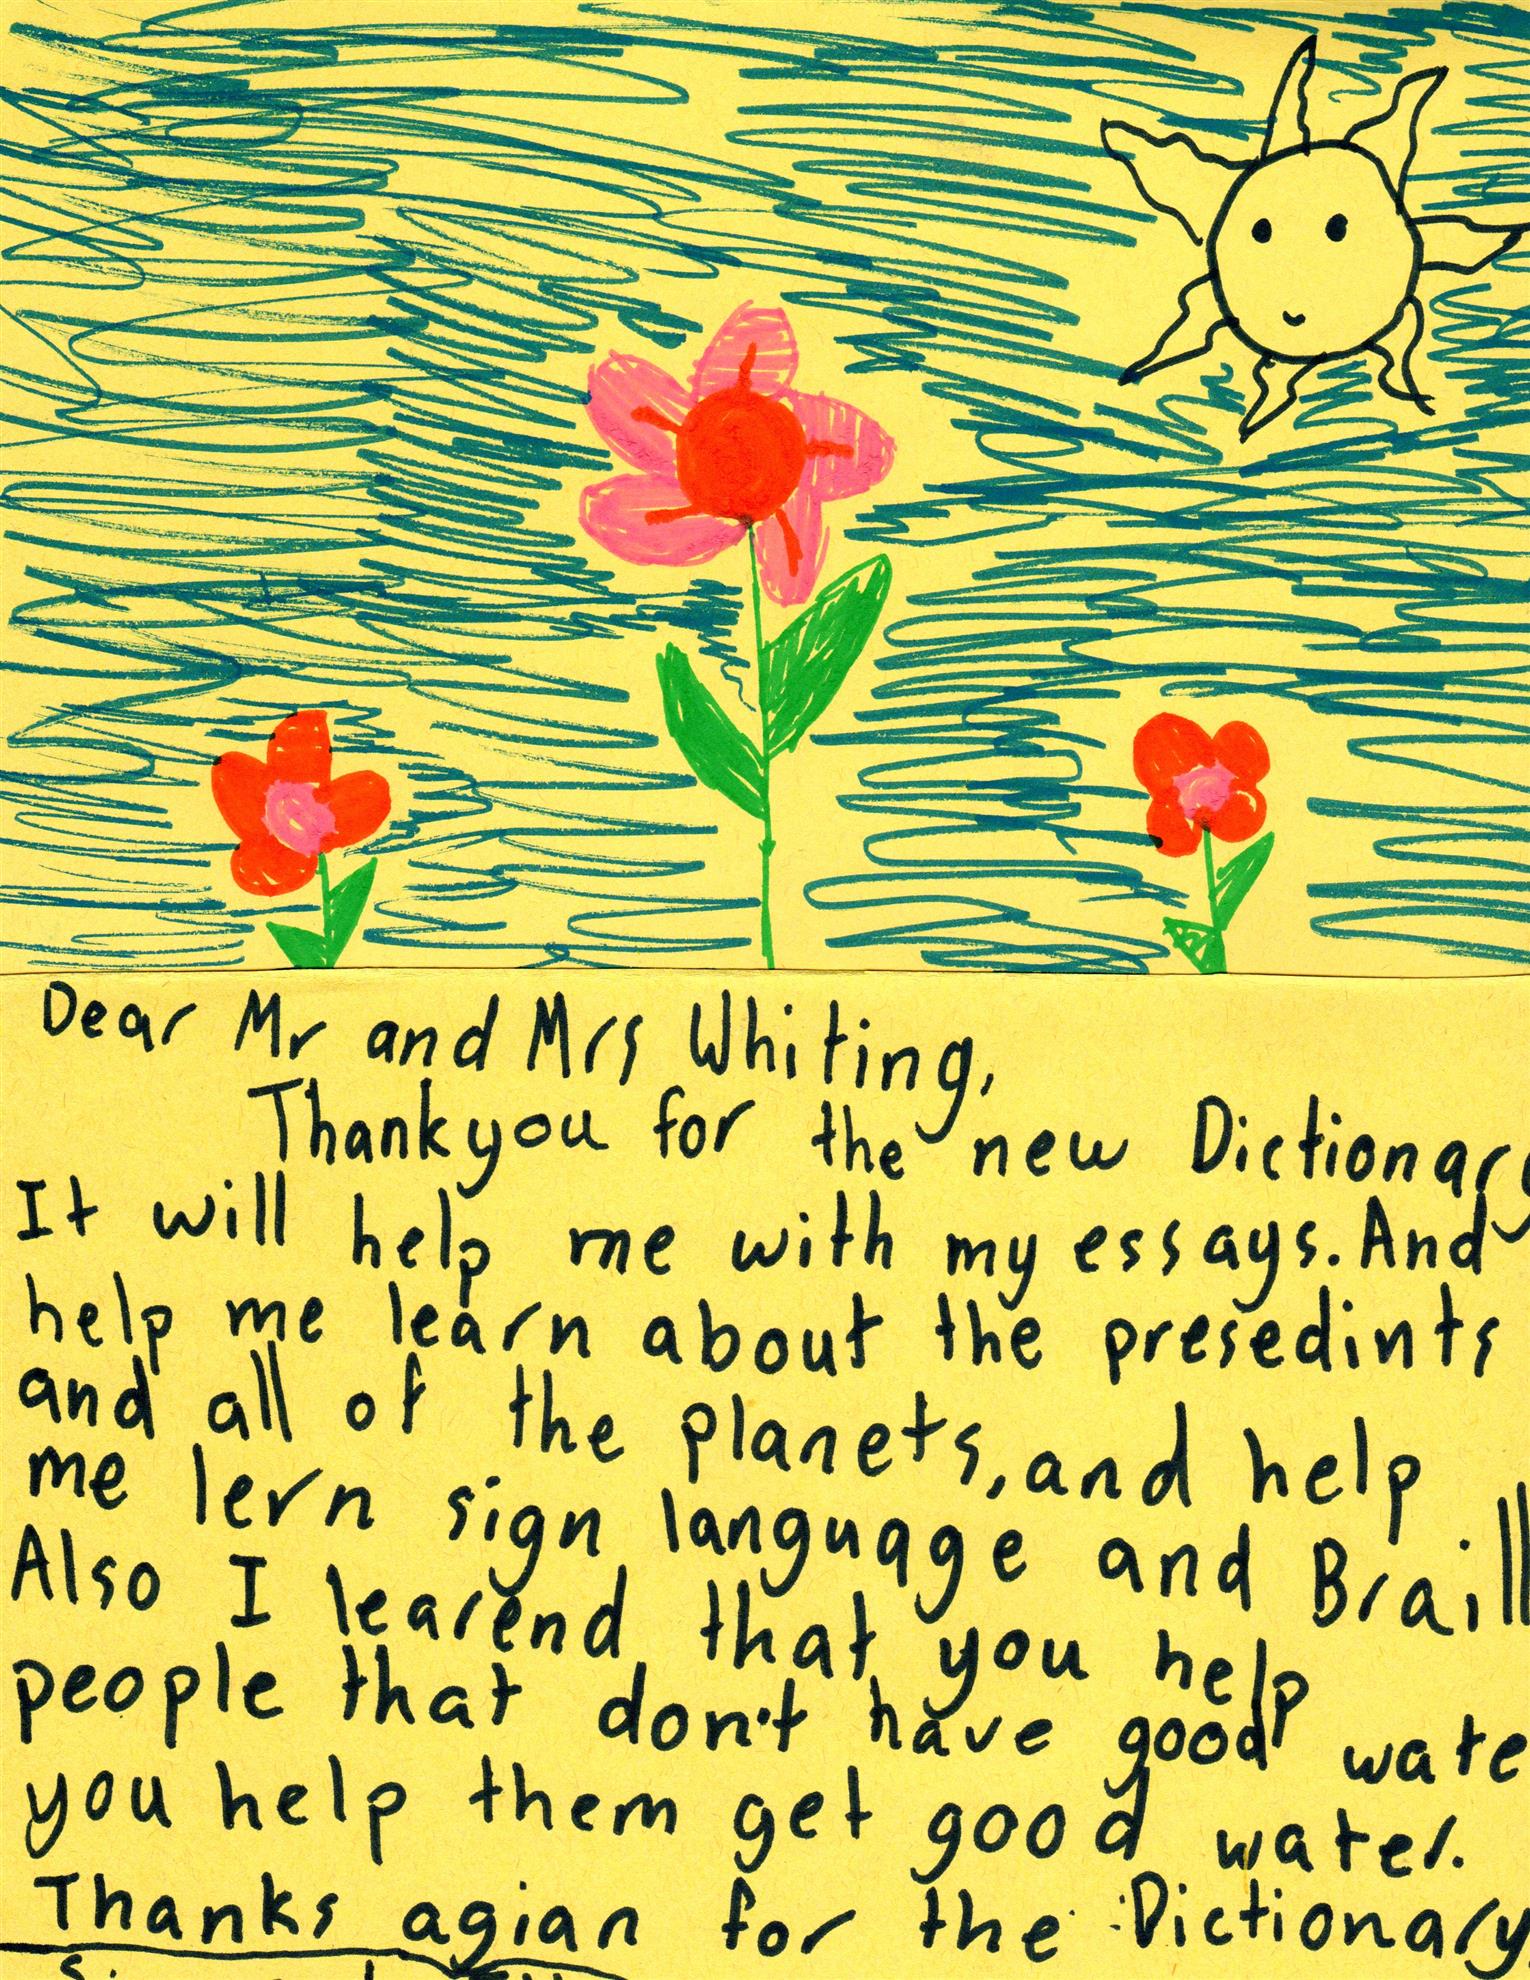 Dear Mr and Mrs Whiting,
Thankyou for the new Dictionary
It will help me with my essays. And
help me learn about the presedints
and all of the planets, and help
me lern sign language and Braill
Also I learend that you help
people that don't have good wate
you help them get good water.
Thanks agian for the Dictionary